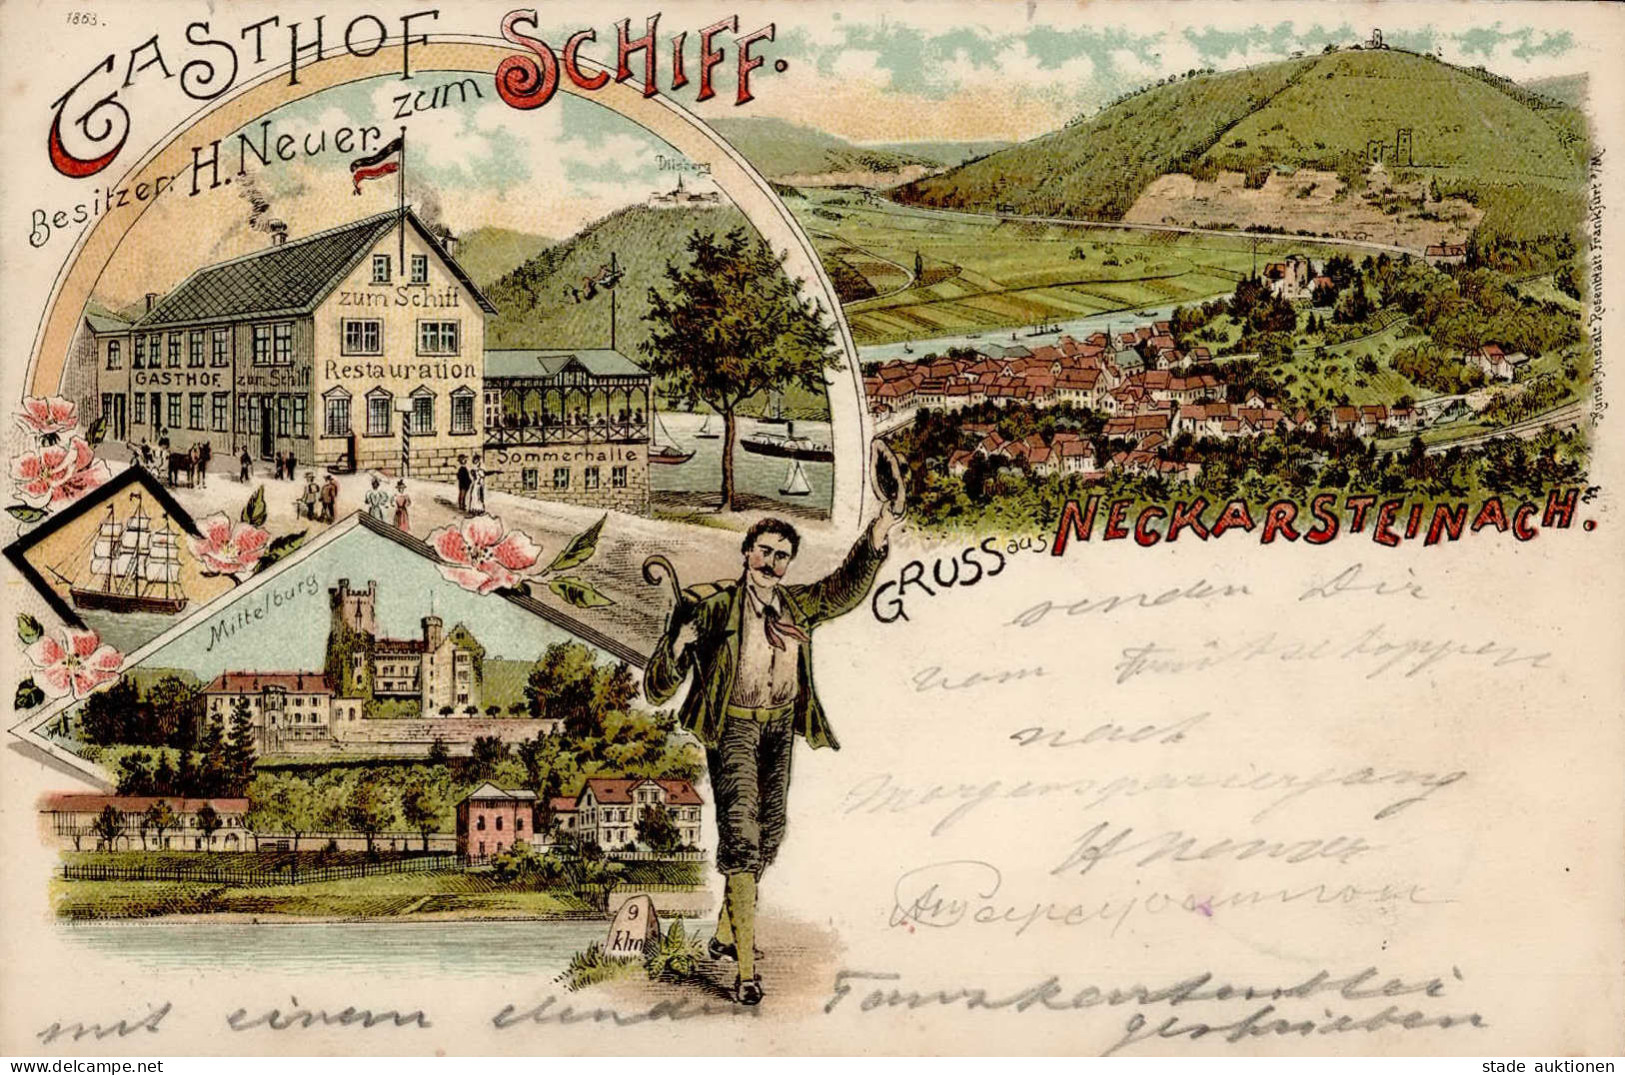 1863.
GASTHOF zum SCHIFF.
Besitzer: H. Neuer.
Dilsberg
zum Schiff
Restauration
GASTHOF zum Schiff
Sommerhalle
Mittelburg
9
klm
GRUSS aus NECKARSTEINACH.
Kunst Anstalt Rosenblatt Frankfurt a/M.
senden Dir
vom Frühschoppen
nach
Morgenspaziergang
mit einem elenden
geschrieben
stade auktionen